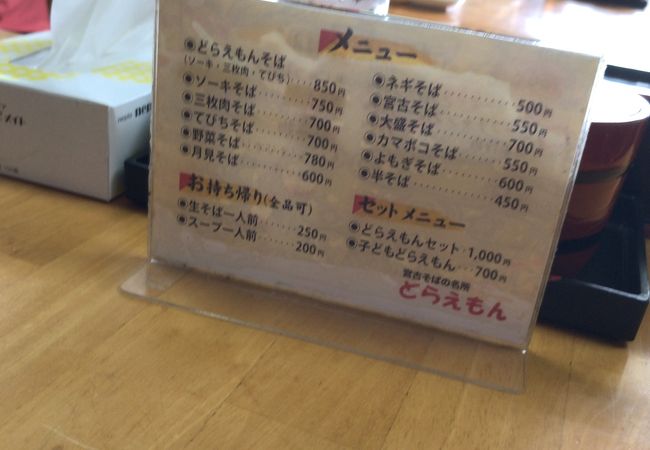 メニュー
●どらえもんそば
(ソーキ・三枚肉・てびち) 850円
●ソーキそば 750円
●三枚肉そば 700円
●てびちそば 700円
●野菜そば 780円
●月見そば 600円
●ネギそば 500円
●宮古そば 550円
●大盛そば 700円
●カマボコそば 550円
●よもぎそば 600円
●半そば 450円
お持ち帰り(全品可)
●生そば一人前 250円
●スープ一人前 200円
セットメニュー
●どらえもんセット 1,000円
●子どもどらえもん 700円
宮古そばの名所
どらえもん